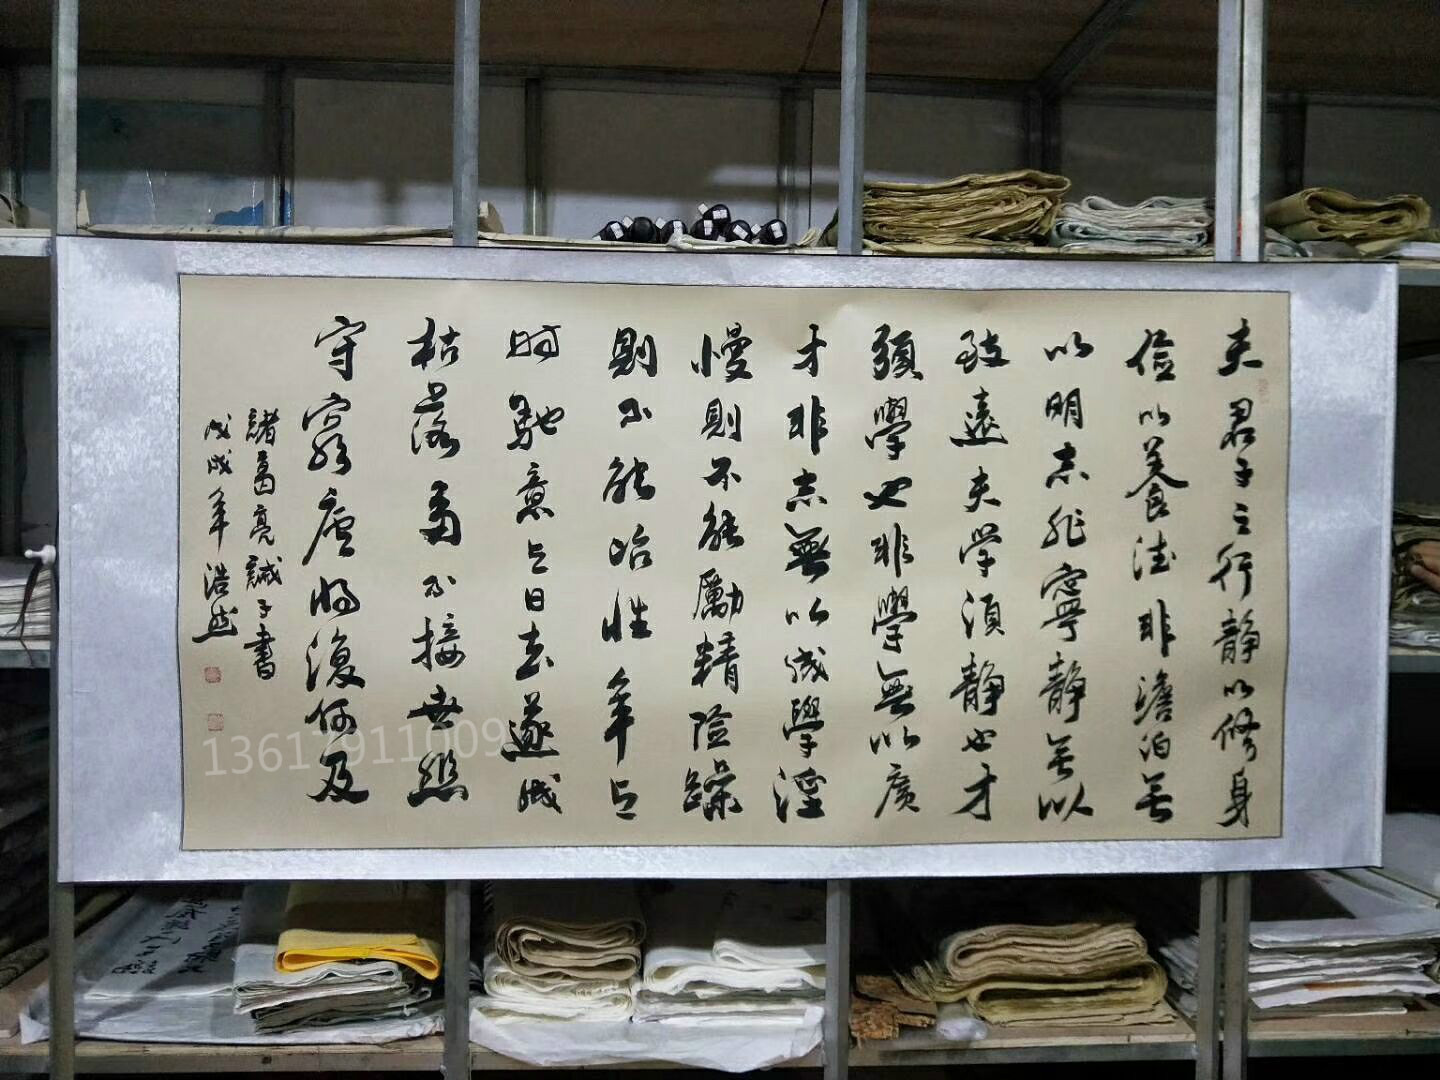 夫君子之行静以修身
俭以养德非澹泊无
以明志非寧静无以
致遠夫学须静也才
須學也非學無以廣
才非志無以成學淫
慢則不能勵精险躁
則不能冶性年与
时馳意与日去遂成
枯落多不接世悲
守窮庐将復何及
諸葛亮誡子書
戊戌年浩然
13617911009